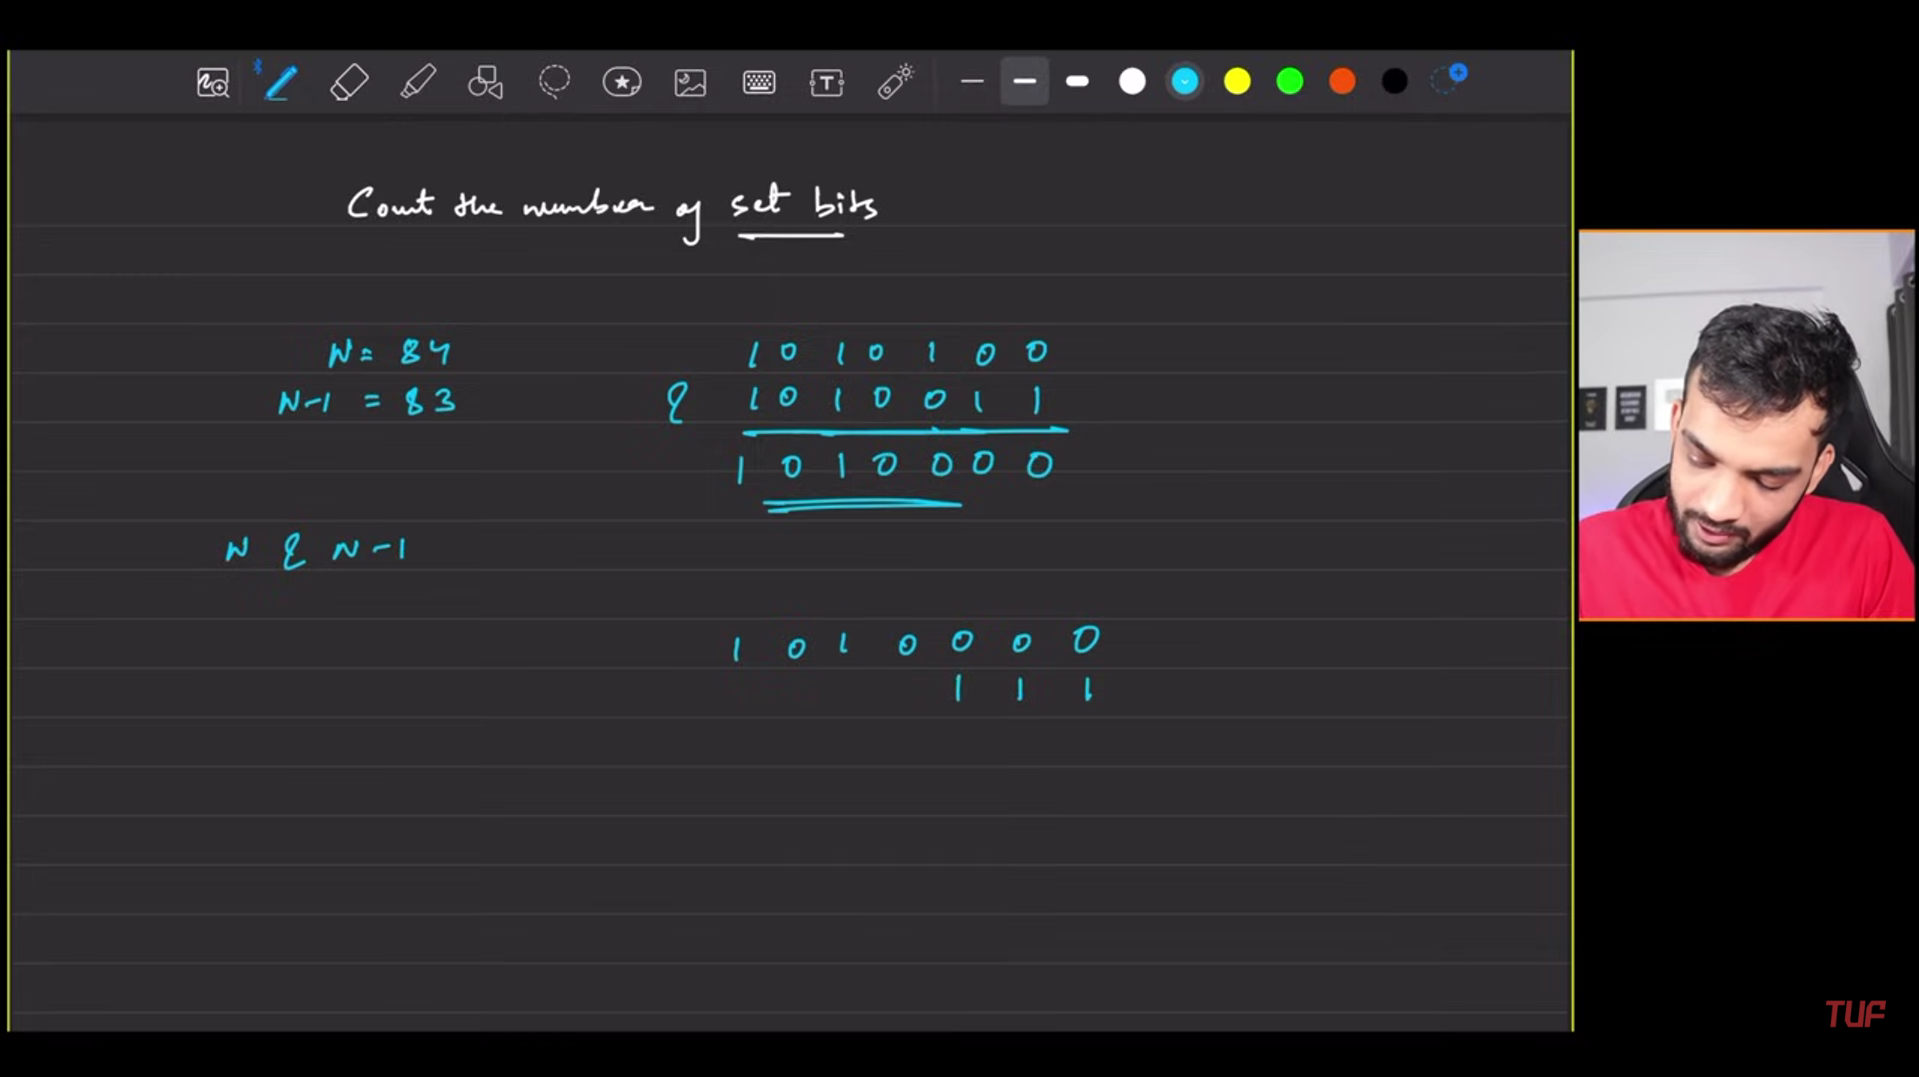 Count the number of set bits
N = 84 1 0 1 0 1 0 0
N-1 = 83 & 1 0 1 0 0 1 1
1 0 1 0 0 0 0
N & N-1
1 0 1 0 0 0 0
1 1 1
TUF